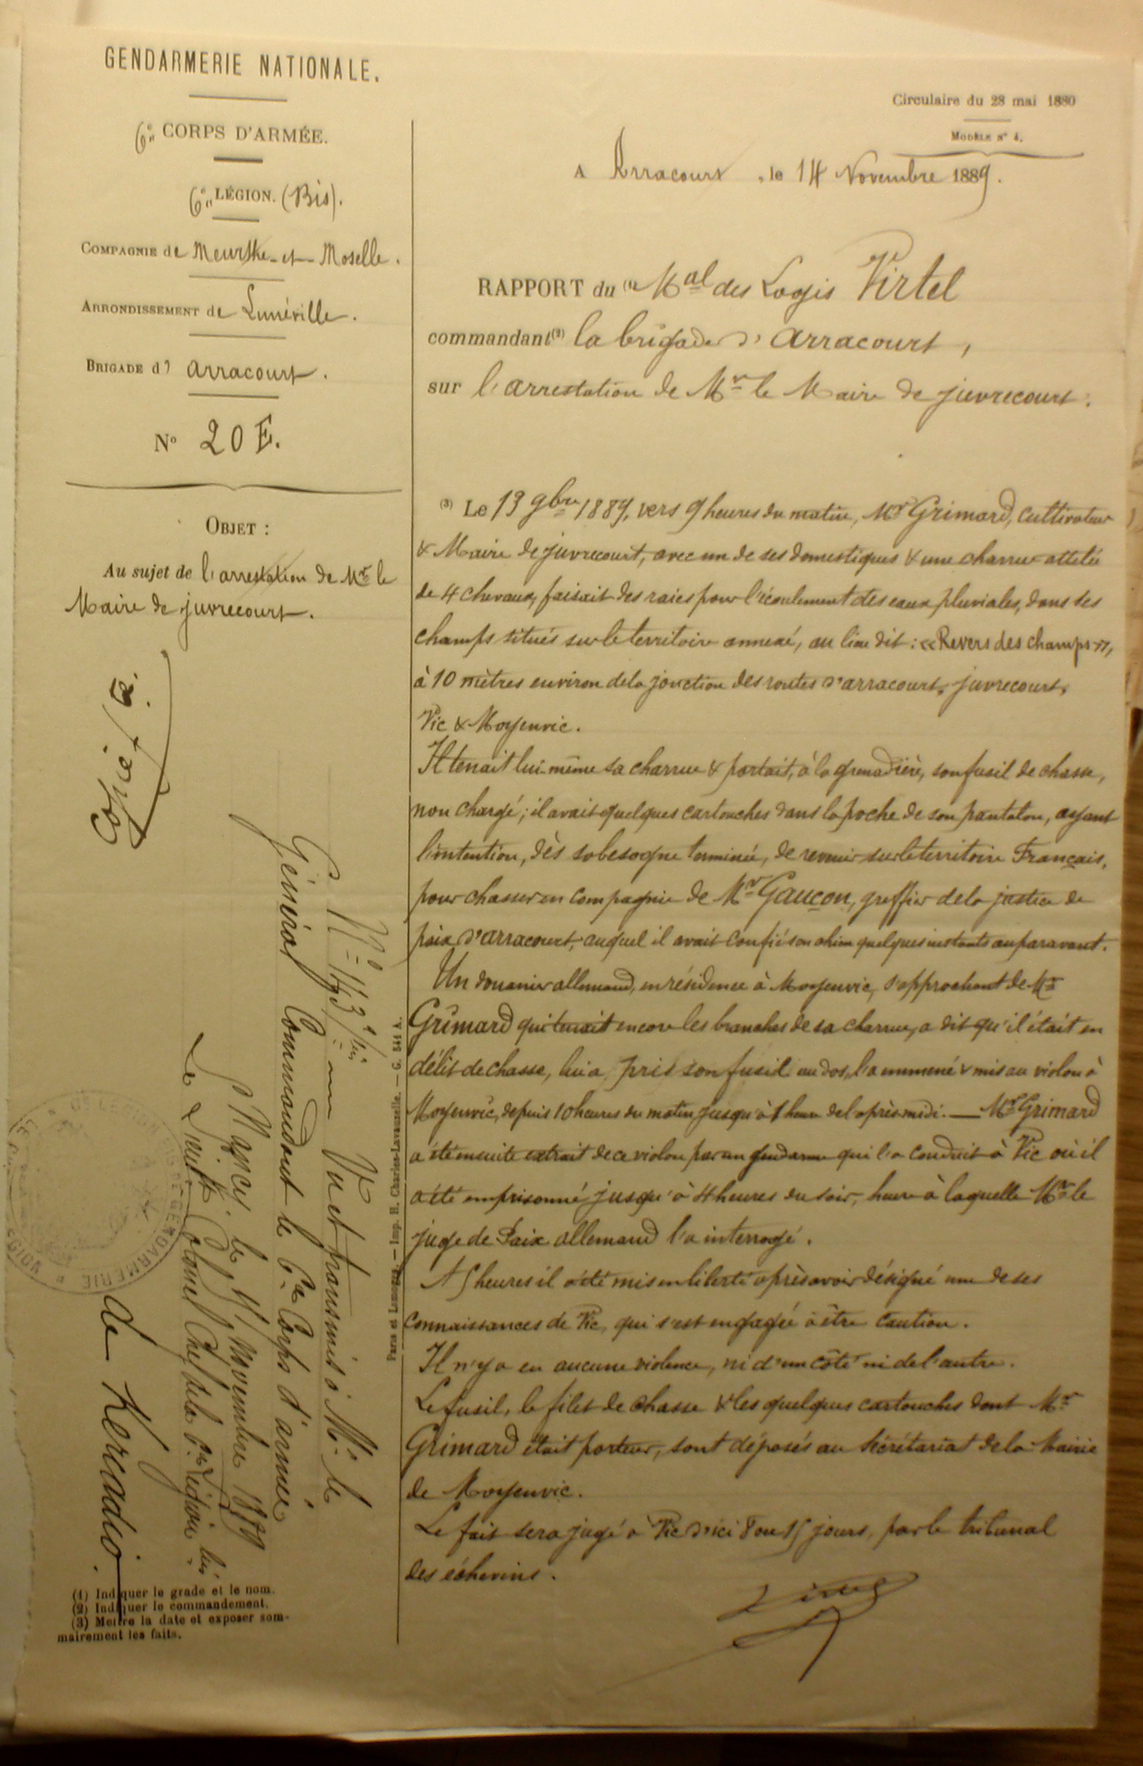 GENDARMERIE NATIONALE.
6e CORPS D'ARMÉE.
6e LÉGION. (Bis).
COMPAGNIE de Meurthe-et-Moselle.
ARRONDISSEMENT de Lunéville.
BRIGADE d' Arracourt.
N° 20 E.
OBJET :
Au sujet de l'arrestation de Mr le
Maire de juvrecourt.
Copié
N° 113 2/bis Vu et transmis à Mr le
Général Commandant le 6e Corps d'armée
Nancy, le novembre 1889
Le Colonel Chef de la 6e Légion bis
de Kerradio
(1) Indiquer le grade et le nom.
(2) Indiquer le commandement.
(3) Mettre la date et exposer som-
mairement les faits.
Paris et Limoges. — Imp. H. Charles-Lavauzelle. — G. 544 A.
Circulaire du 28 mai 1880
MODÈLE N° 4.
A Arracourt, le 14 Novembre 1889.
RAPPORT du (1) Mal des Logis Virtel
commandant (2) la brigade d'Arracourt,
sur l'arrestation de Mr le Maire de juvrecourt.
(3) Le 13 9bre 1889, vers 9 heures du matin, Mr Grimard, cultivateur
& Maire de juvrecourt, avec un de ses domestiques & une charrue attelée
de 4 chevaux, faisait des raies pour l'écoulement des eaux pluviales, dans ses
champs situés sur le territoire annexé, au lieu dit : «Revers des champs»,
à 10 mètres environ de la jonction des routes d'arracourt, juvrecourt,
Vic & Moyenvic.
Il tenait lui-même sa charrue & portait, à la grenadière, son fusil de chasse,
non chargé ; il avait quelques cartouches dans la poche de son pantalon, ayant
l'intention, dès sa besogne terminée, de revenir sur le territoire Français,
pour chasser en compagnie de Mr Gaucon, greffier de la justice de
paix d'arracourt, auquel il avait confié son chien quelques instants auparavant.
Un douanier allemand, en résidence à Moyenvic, s'approchant de Mr
Grimard qui tenait encore les branches de sa charrue, a dit qu'il était en
délit de chasse, lui a pris son fusil au dos, l'a emmené & mis au violon à
Moyenvic, depuis 10 heures du matin jusqu'à 1 heure de l'après-midi. — Mr Grimard
a été ensuite extrait de ce violon par un gendarme qui l'a conduit à Vic où il
a été emprisonné jusqu'à 4 heures du soir, heure à laquelle Mr le
juge de Paix allemand l'a interrogé.
A 5 heures il a été mis en liberté après avoir désigné une de ses
connaissances de Vic, qui s'est engagée à être caution.
Il n'y a eu aucune violence, ni d'un côté ni de l'autre.
Le fusil, le filet de chasse & les quelques cartouches dont Mr
Grimard était porteur, sont déposés au Secrétariat de la Mairie
de Moyenvic.
Le fait sera jugé à Vic d'ici 8 ou 15 jours, par le tribunal
des échevins.